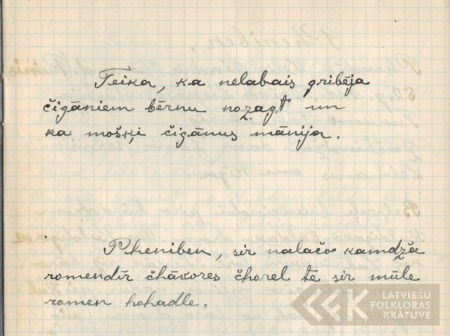 Teika, ka nelabais gribēja
čigāniem bērnu nozagt un
ka moški čigānus mānija.
Pheniben, sir nalačo kamdža
romendīr čhāvores čhorel te sir mūle
romen hohadle.
LATVIEŠU
FOLKLORAS
KRĀTUVE